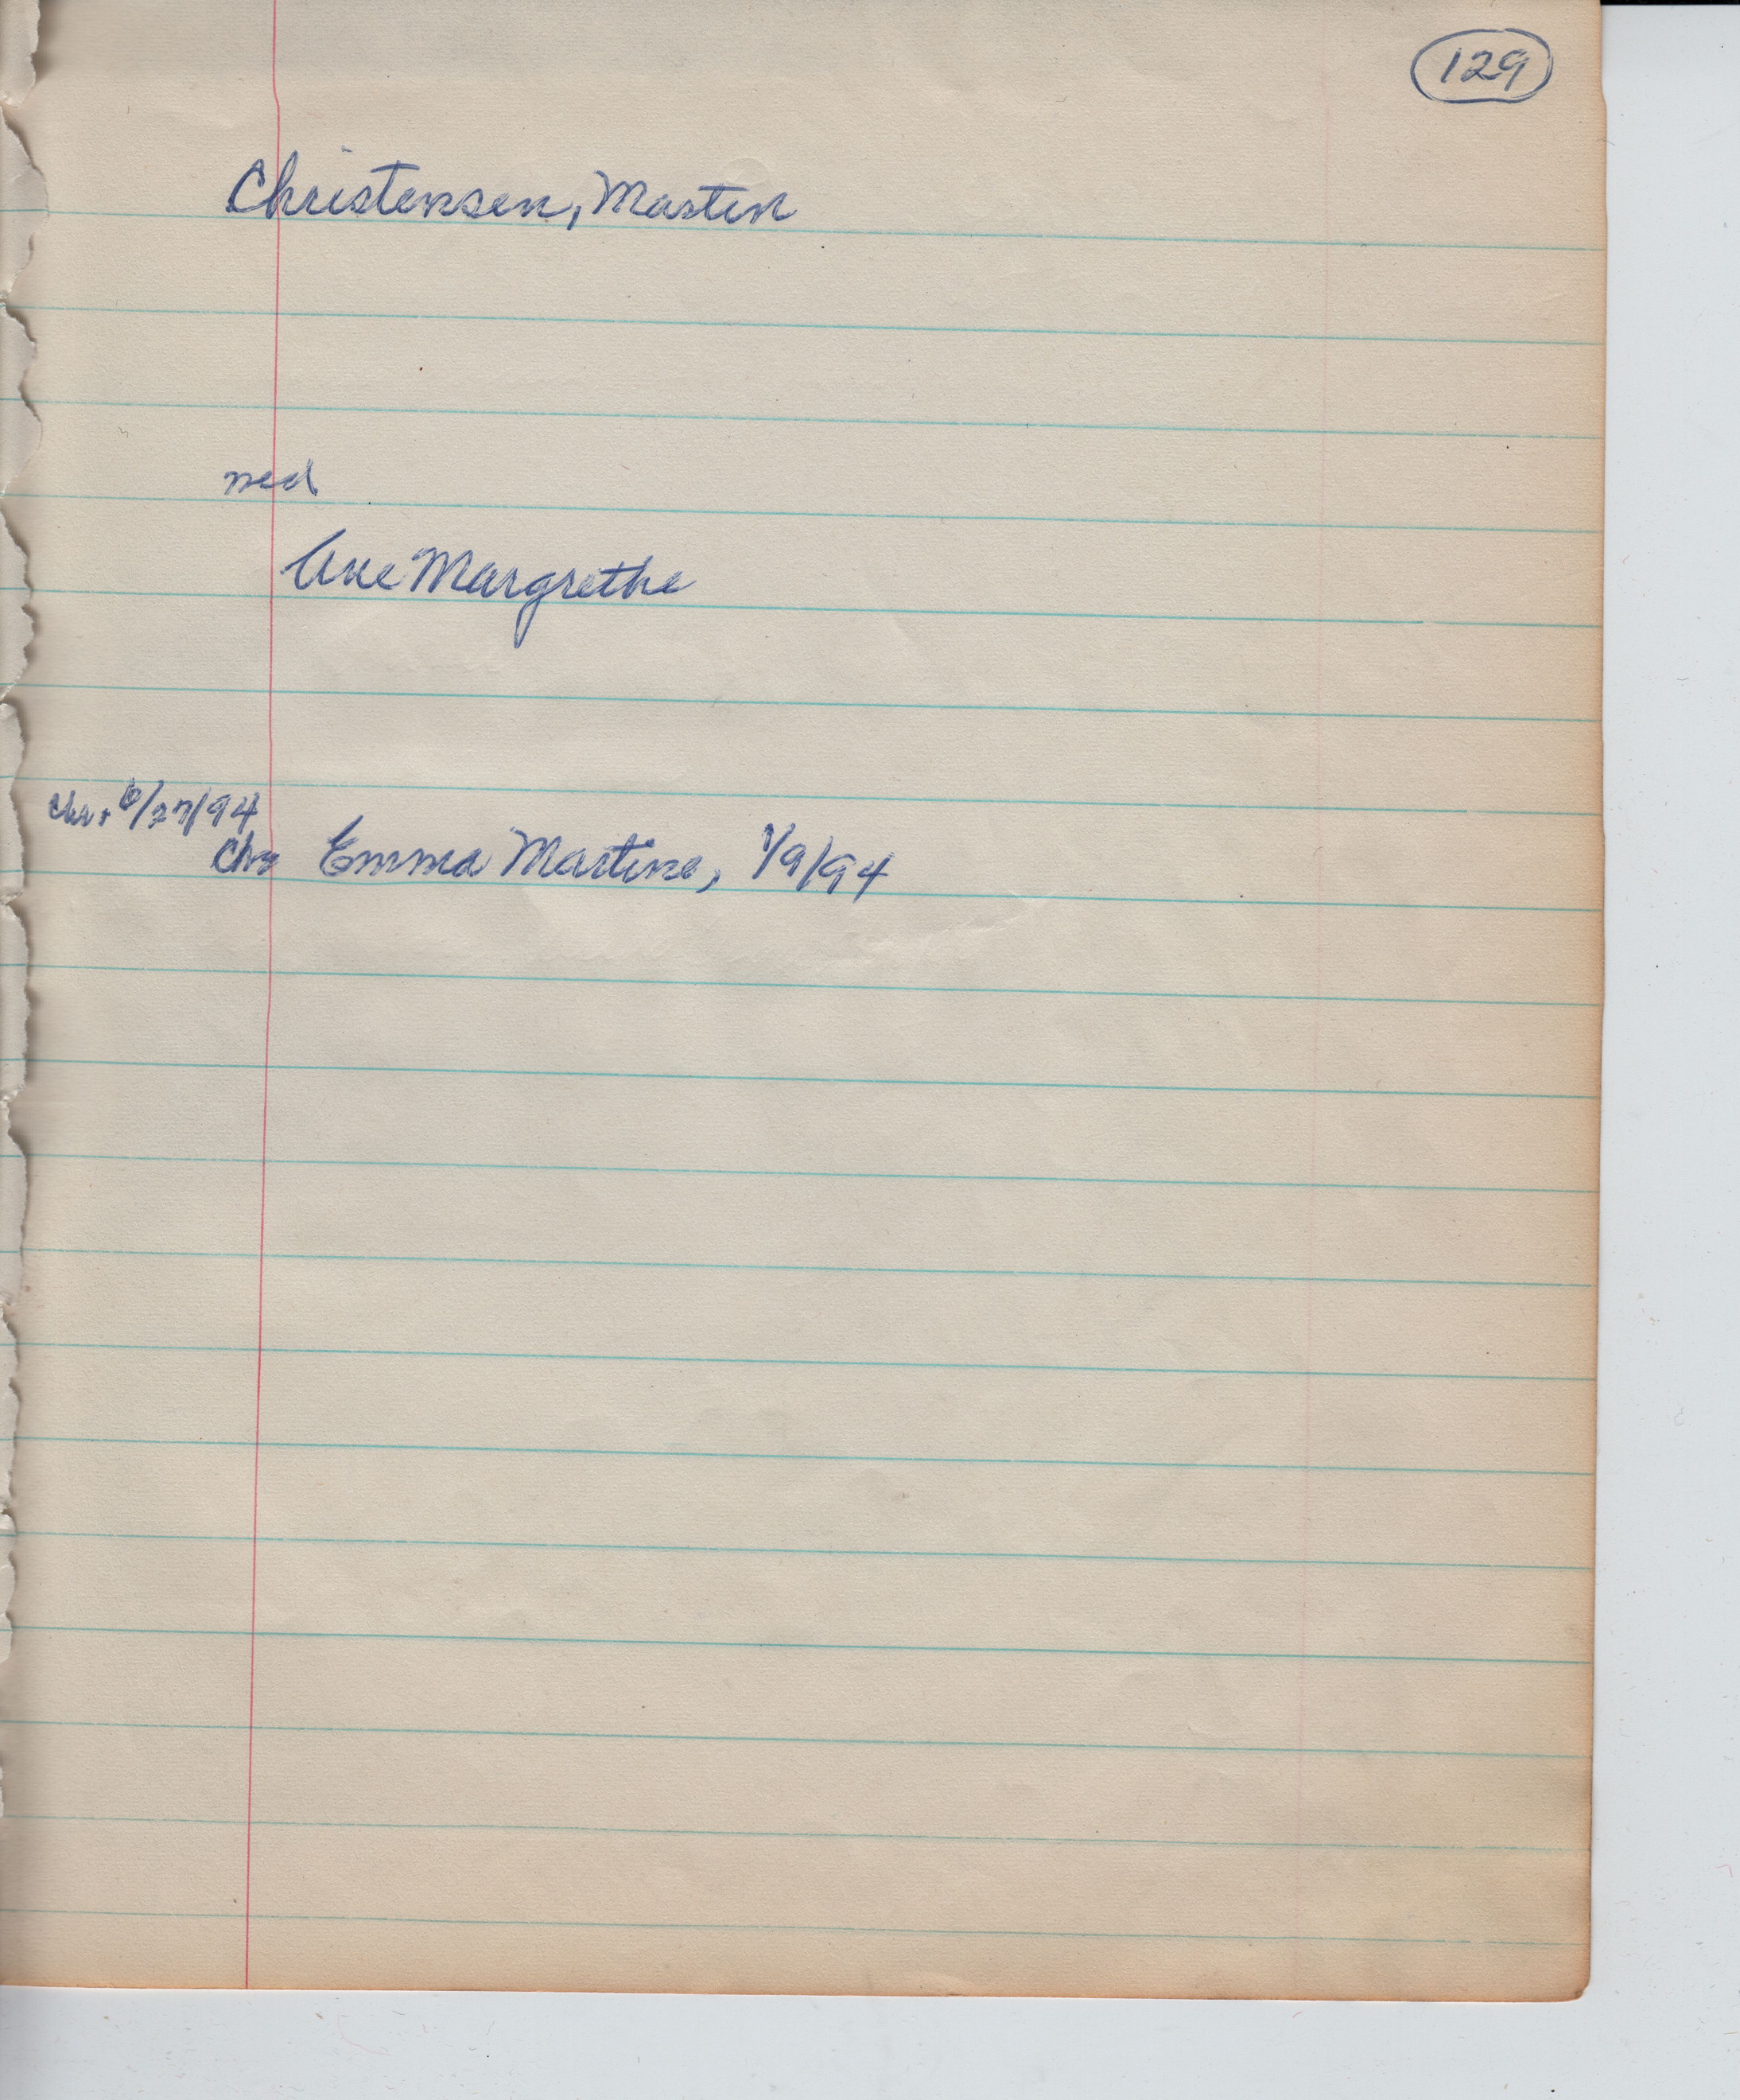 129
Christensen, Martin
med
Ane Margrethe
Chr. 6/27/94
Chr Emma Martine, 1/9/94